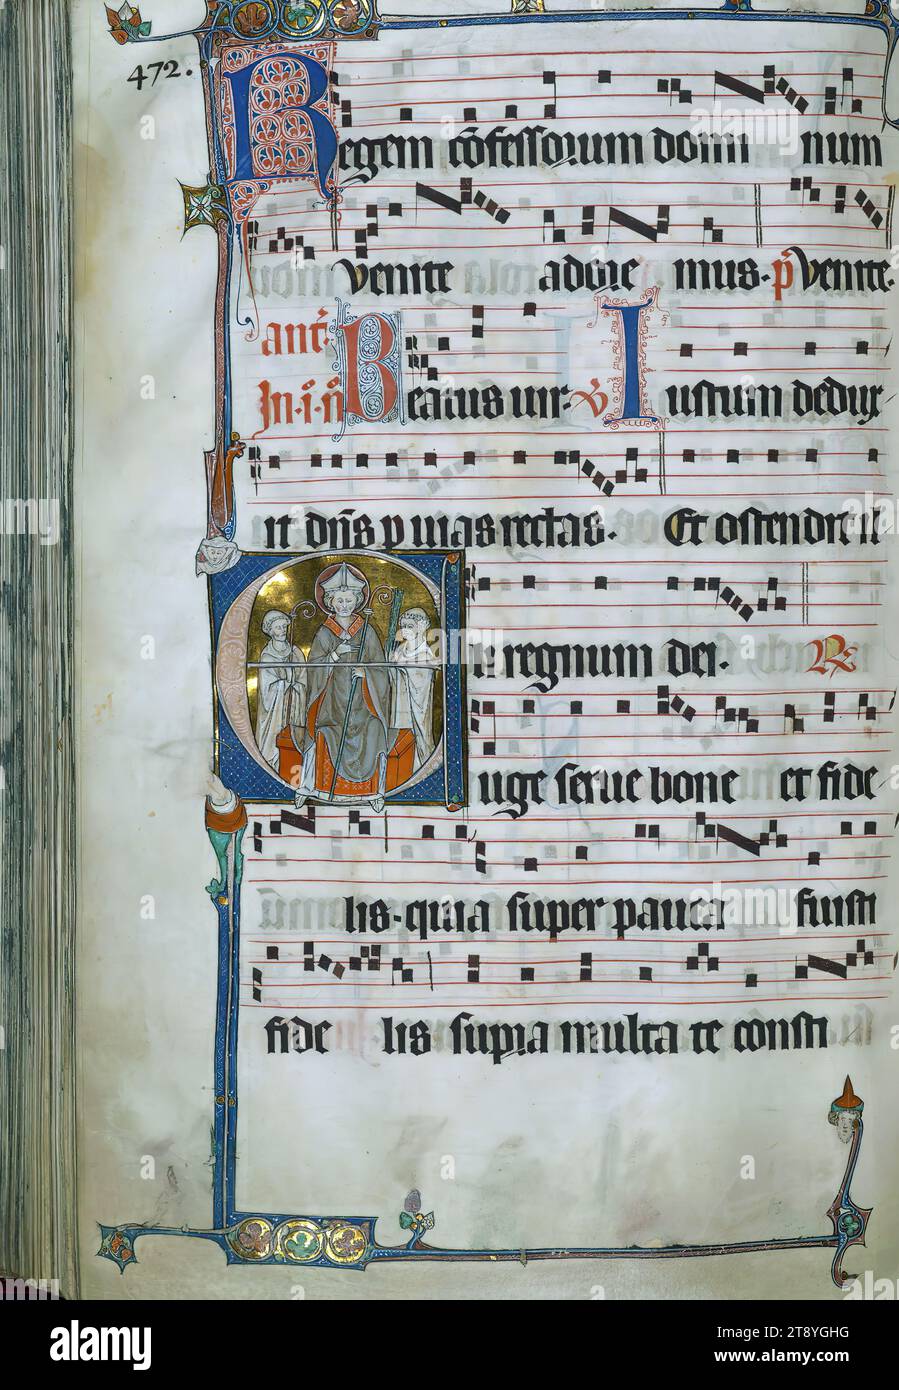 472.
Regem cōfessorum domi num
venite adore mus. p̄ venite.
ant̄. Beatus uir. ℣ Iustum dedux
In .i. n̄
it dn̄s p uias rectas. Et ostendit il
li regnum dei. ℟
Euge serue bone et fide
lis. quia super pauca fuisti
fide lis supra multa te consti
alamy
Image ID: 2T8YGHG
www.alamy.com